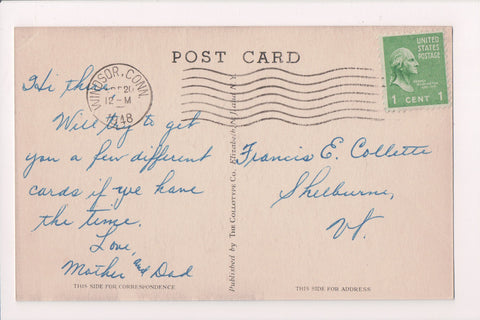 POST CARD
UNITED STATES
POSTAGE
1 CENT 1
WINDSOR, CONN.
20
12-M
1948
Hi there,
Will try to get
you a few different
cards if we have
the time.
Love,
Mother and Dad
THIS SIDE FOR CORRESPONDENCE
Published by THE COLLOTYPE Co., Elizabeth, N. J.
Francis E. Collette
Shelburne,
Vt.
THIS SIDE FOR ADDRESS